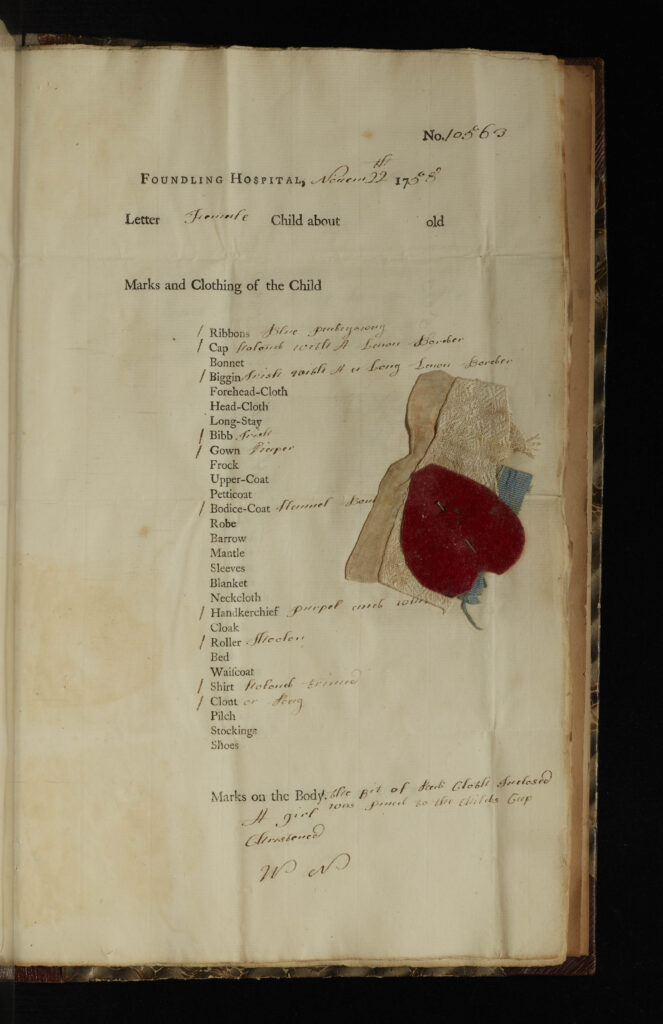 No. 10563
FOUNDLING HOSPITAL, Novem 22th 1758
Letter Female Child about old
Marks and Clothing of the Child
/ Ribbons Blue
/ Cap Holand with A Lawn Border
Bonnet
/ Biggin Irish with A Long Lawn Border
Forehead-Cloth
Head-Cloth
Long-Stay
/ Bibb Irish
/ Gown Diaper
Frock
Upper-Coat
Petticoat
/ Bodice-Coat Flannel
Robe
Barrow
Mantle
Sleeves
Blanket
Neckcloth
/ Handkerchief purpel and
Cloak
/ Roller
Bed
Waiscoat
/ Shirt Holand trimed
/ Clout or Rag
Pilch
Stockings
Shoes
Marks on the Body. the Bit of Red Cloth Inclosed
A girl was pined to the Childs Cap
W N